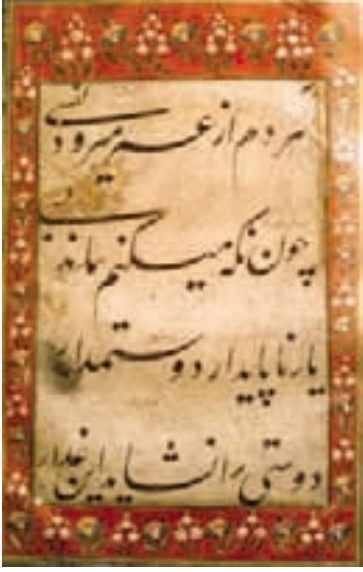 هر دم از عمر میرود نفسی
چون نگه میکنم نماند بسی
یار ناپایدار دوست مدار
دوستی را نشاید این غدار